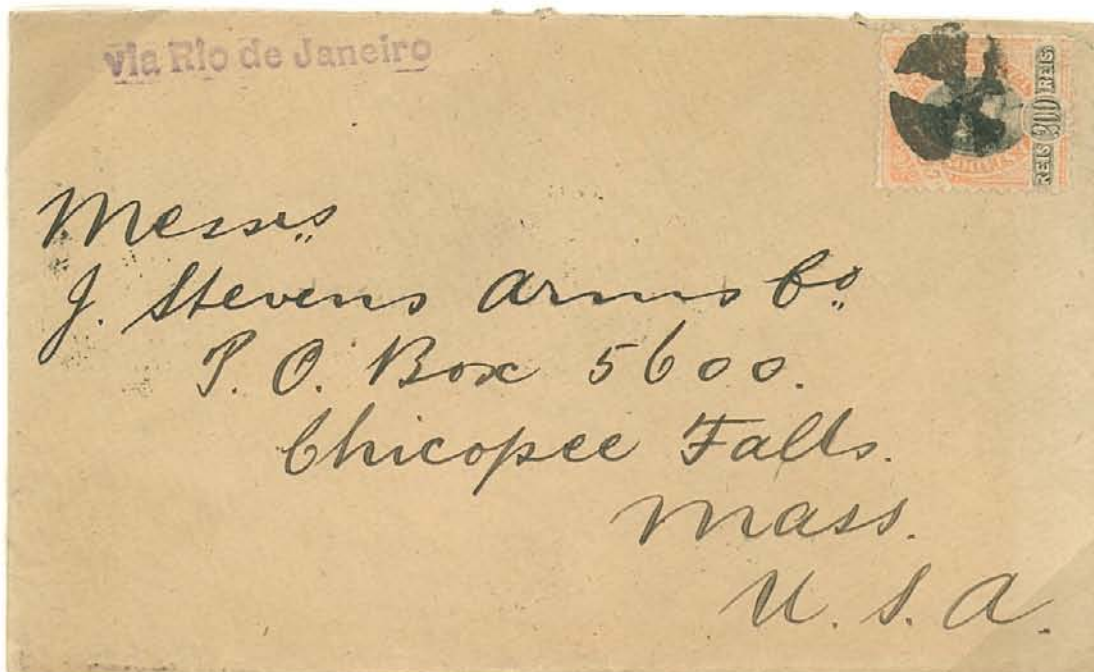 via Rio de Janeiro
REIS 200 REIS
Messrs
J. Stevens Arms Co
P. O. Box 5600.
Chicopee Falls.
Mass.
U. S. A.